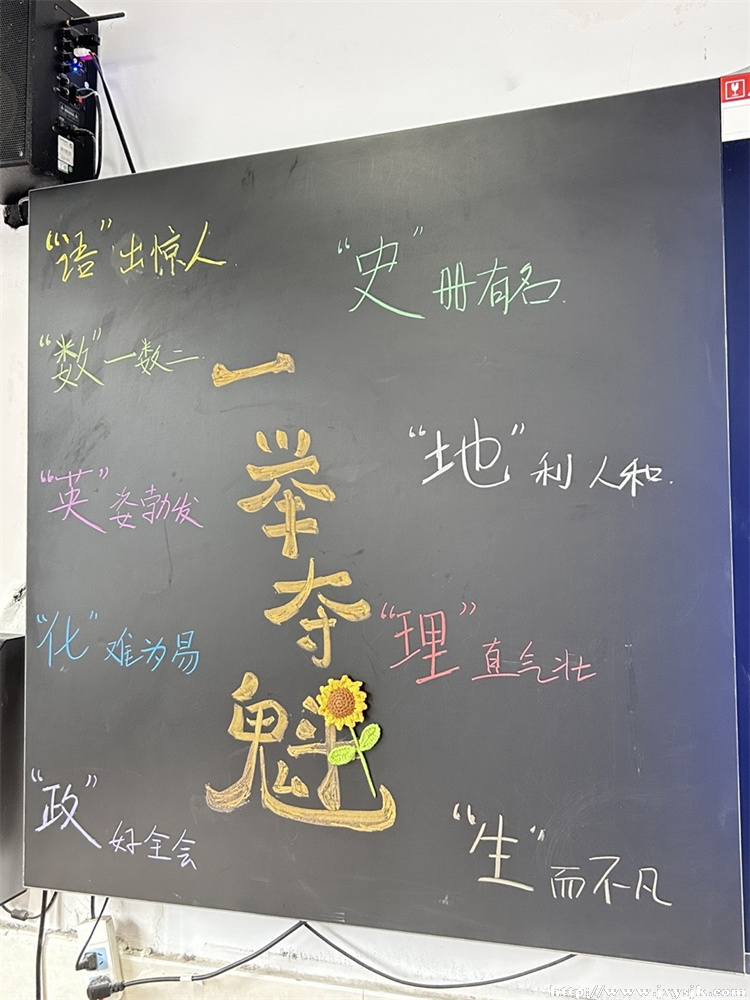 “语”出惊人
“史”册有名
“数”一数二
一举夺魁
“地”利人和
“英”姿勃发
“化”难为易
“理”直气壮
“政”好全会
“生”而不凡
http://www.jxysjk.com